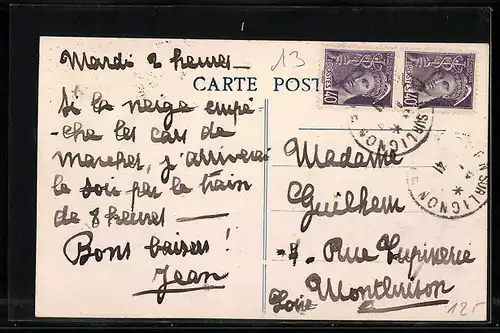 Mardi 2 heures –
13
CARTE POST
Si la neige empê-
che les cars de
marcher, j'arriverai
le soir par le train
de 8 heures —
Bons baisers !
Jean
POSTES
40
POSTES
40
SUR LIGNON
SUR LIGNON
41
Madame
Guilhem
Rue
Montluison
Loire
125